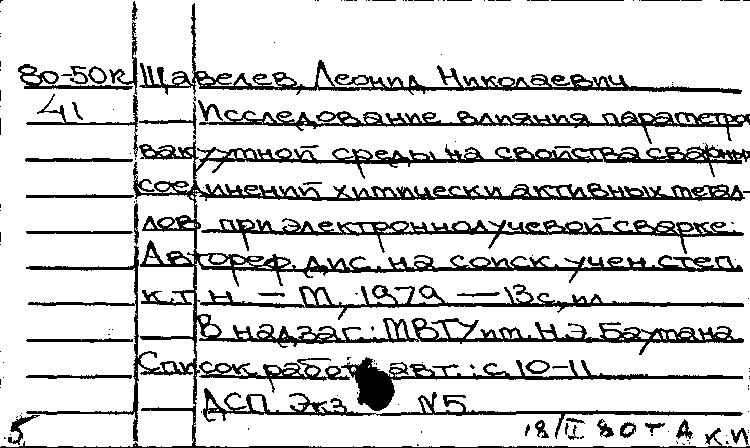 80-50к Щавелев, Леонид Николаевич
41 Исследование влияния параметров
вакуумной среды на свойства сварных
соединений химически активных метал-
лов при электроннолучевой сварке:
Автореф. дис. на соиск. учен. степ.
к.т.н. — М., 1979 — 13 с., ил.
В надзаг.: МВТУ им. Н.Э. Баумана
Список работ авт.: с. 10-11.
ДСП. Экз. №5
5 18/II 80 г А к.и